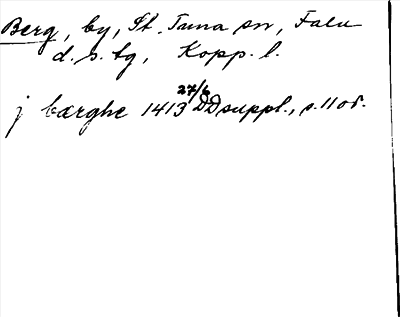 Berg, by, St. Tuna sn, Falu
d. s. bg, Kopp. l.
j bærghe 1413 27/6 DD suppl., s. 110 f.